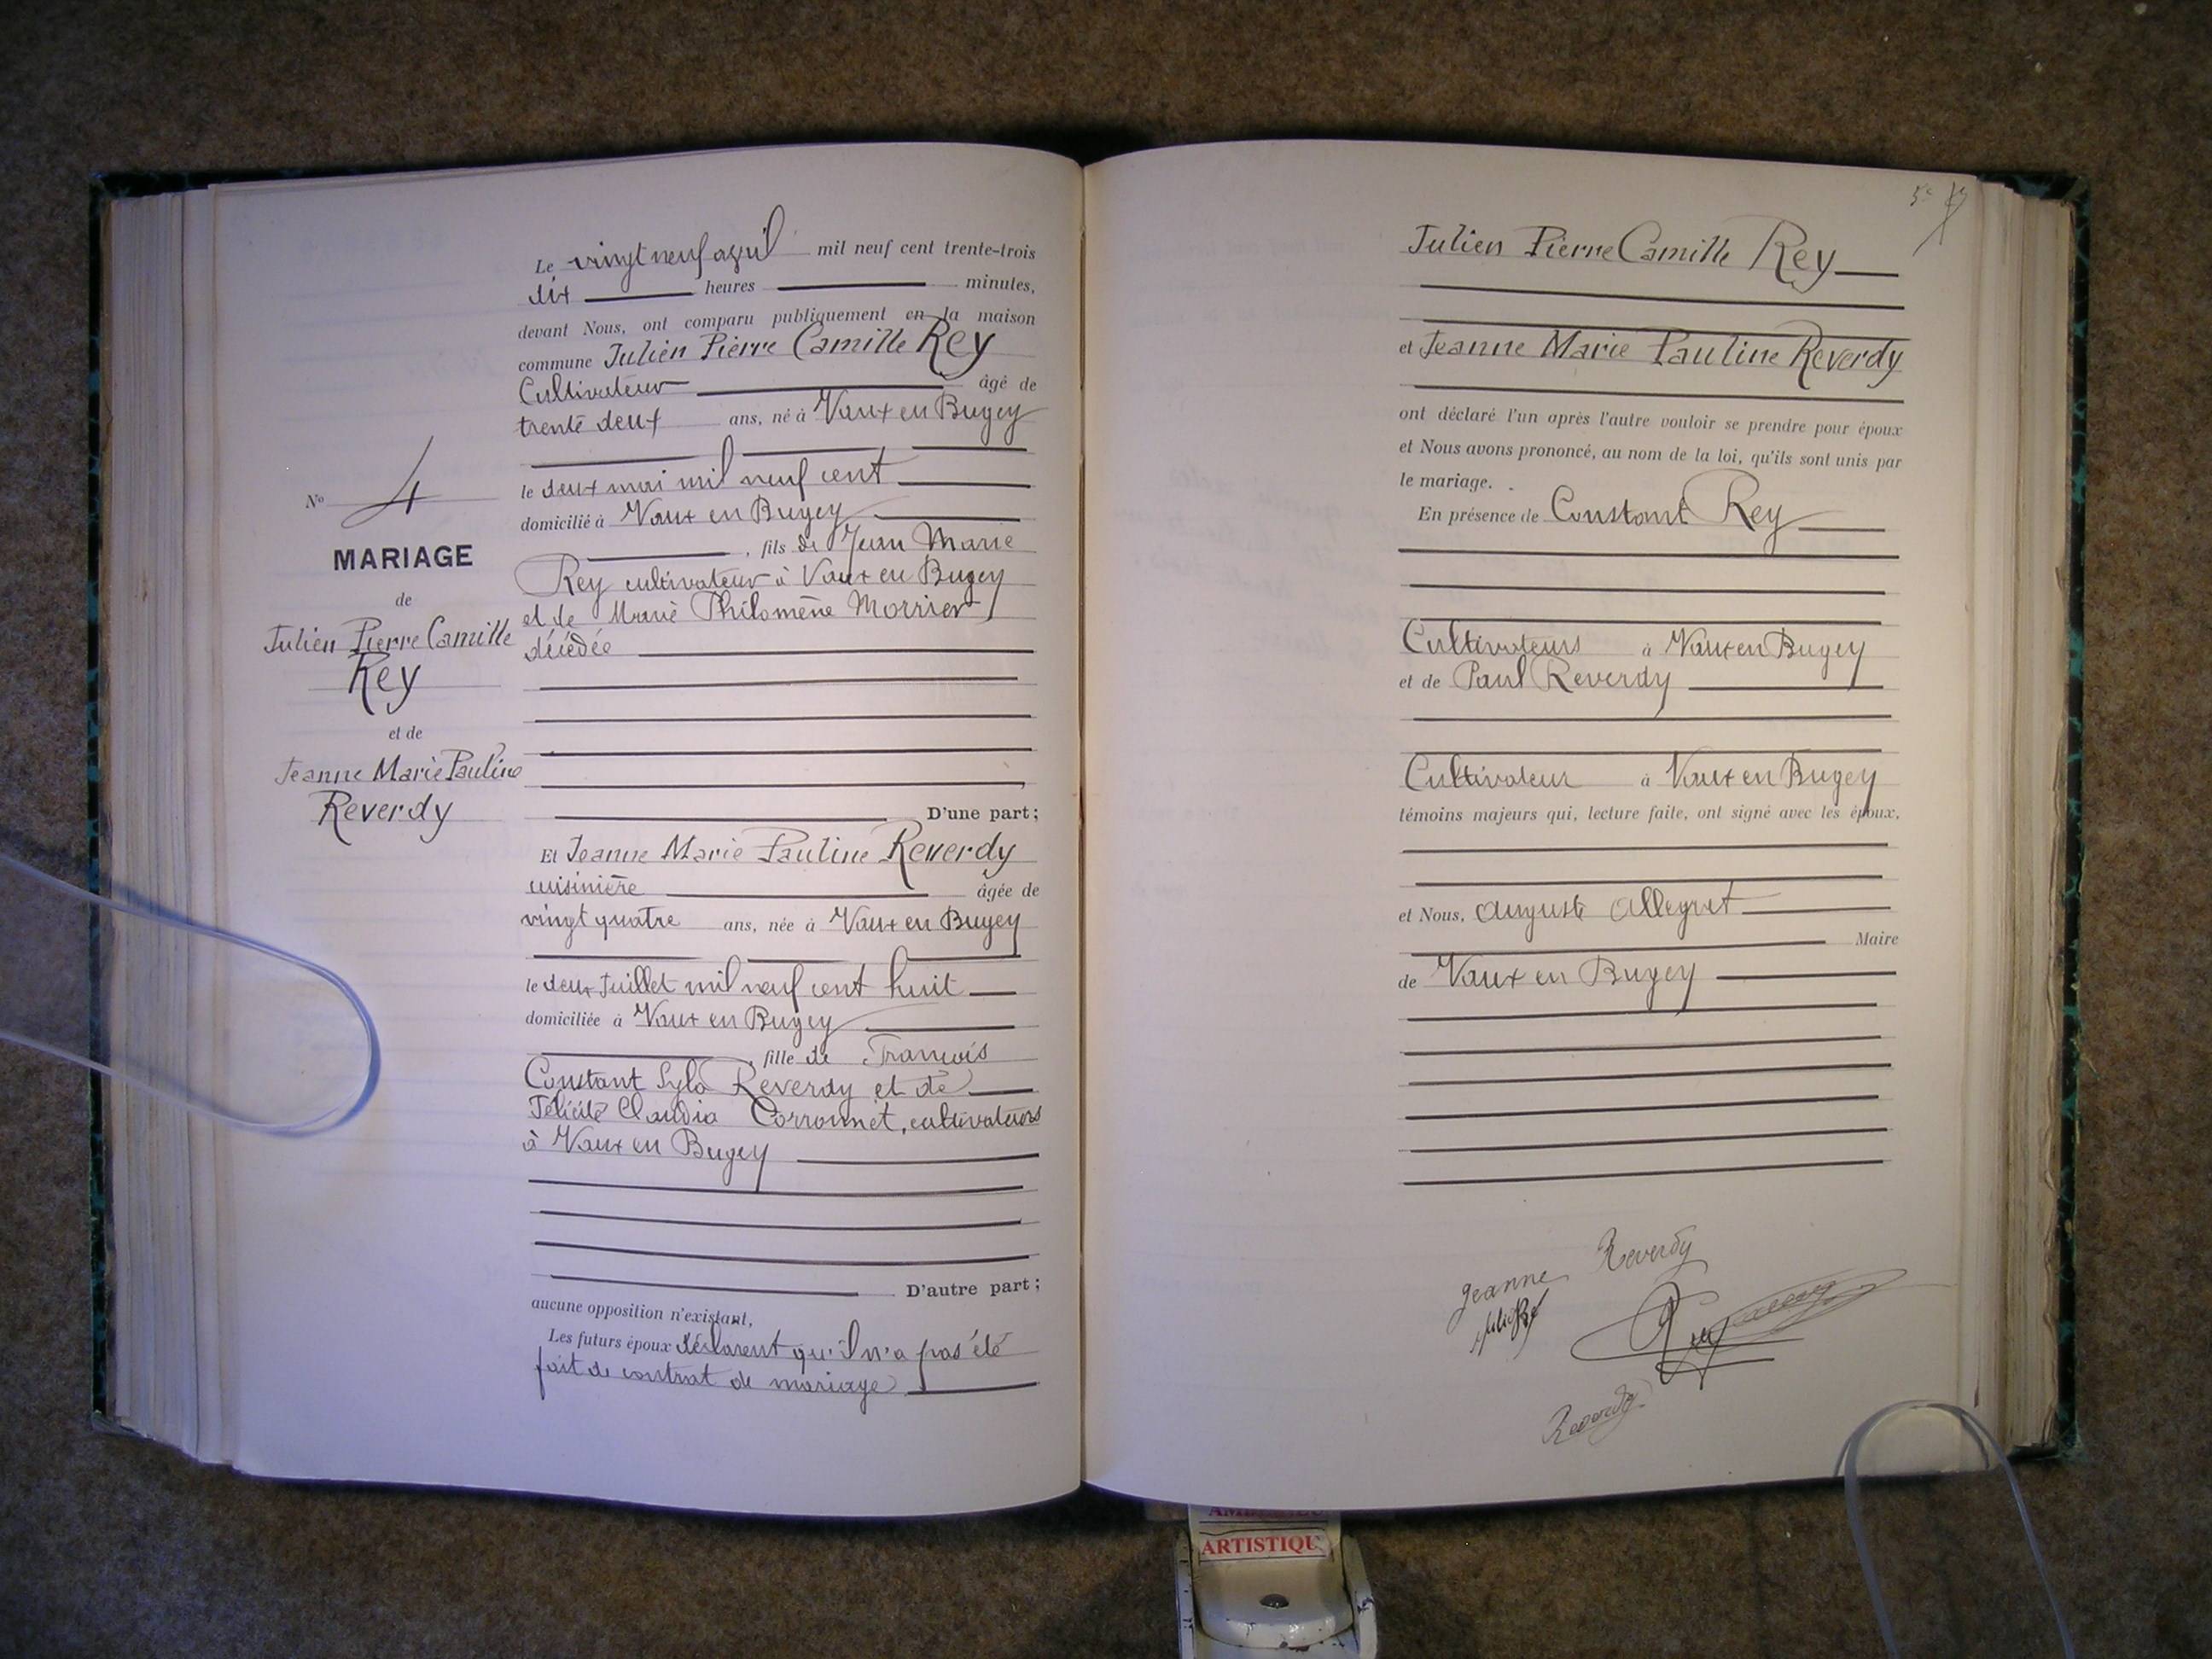 Le vingt neuf avril mil neuf cent trente-trois
dix heures minutes,
devant Nous, ont comparu publiquement en la maison
commune Julien Pierre Camille Rey
Cultivateur âgé de
trente deux ans, né à Vaux en Bugey
le deux mai mil neuf cent
domicilié à Vaux en Bugey
, fils de Jean Marie
Rey cultivateur à Vaux en Bugey
et de Marie Philomène Morrier
décédée
D'une part;
Et Jeanne Marie Pauline Reverdy
cuisinière âgée de
vingt quatre ans, née à Vaux en Bugey
le deux Juillet mil neuf cent huit
domiciliée à Vaux en Bugey
, fille de François
Constant Reverdy et de
Félicité Claudia Corronnet, cultivateurs
à Vaux en Bugey
D'autre part;
aucune opposition n'existant,
Les futurs époux déclarent qu'il n'a pas été
fait de contrat de mariage
No 4
MARIAGE
de
Julien Pierre Camille
Rey
et de
Jeanne Marie Pauline
Reverdy
Julien Pierre Camille Rey
et Jeanne Marie Pauline Reverdy
ont déclaré l'un après l'autre vouloir se prendre pour époux
et Nous avons prononcé, au nom de la loi, qu'ils sont unis par
le mariage.
En présence de Constant Rey
Cultivateurs à Vaux en Bugey
et de Paul Reverdy
Cultivateur à Vaux en Bugey
témoins majeurs qui, lecture faite, ont signé avec les époux,
et Nous, Auguste Alleyret
Maire
de Vaux en Bugey
Jeanne Reverdy
Rey
Reverdy
ARTISTIQU